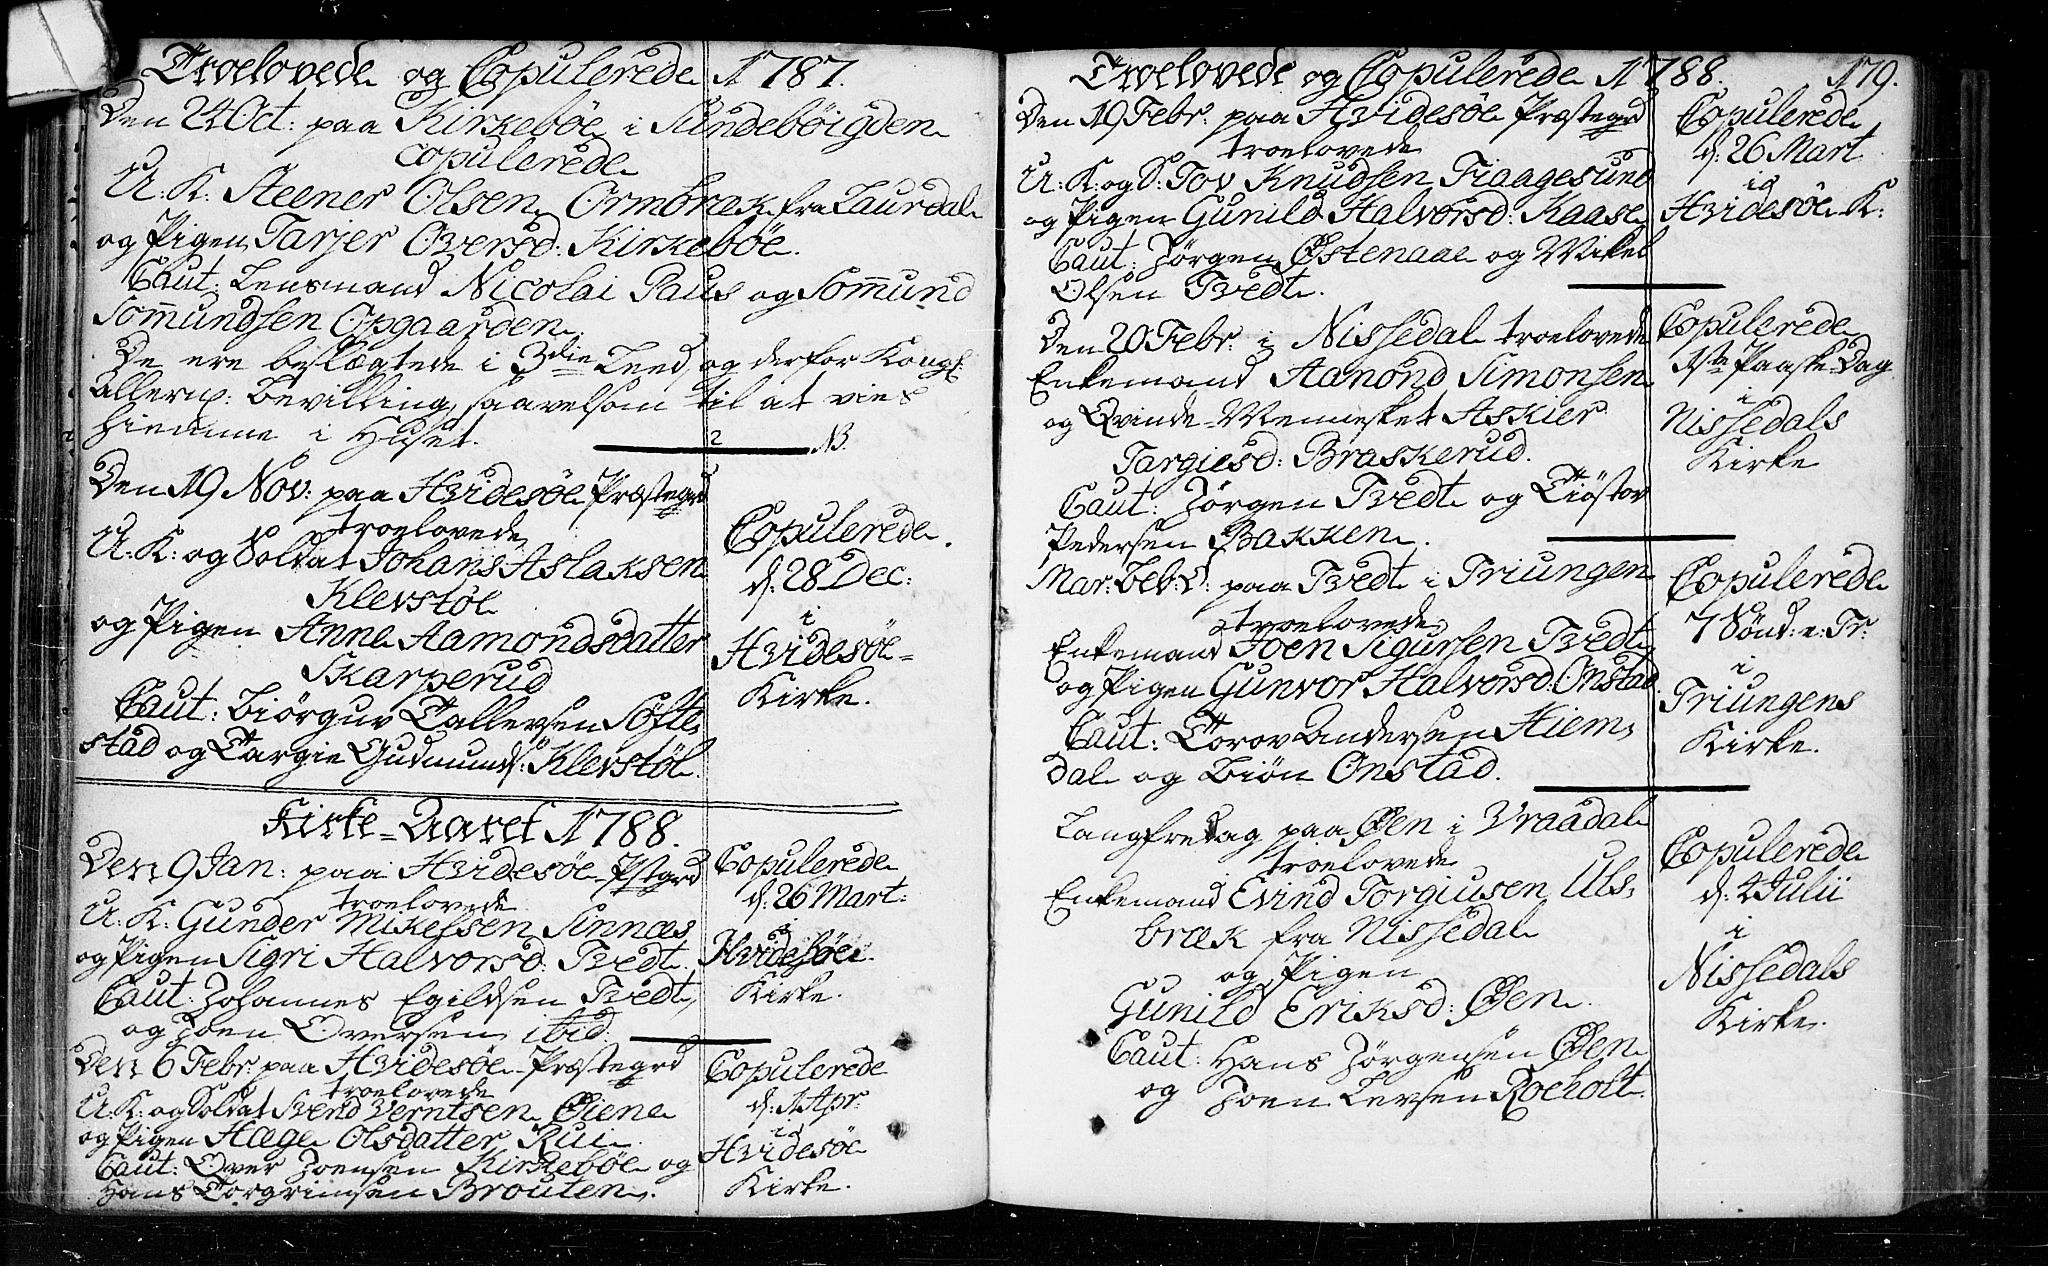 Troelovede og Copulerede 1787.
Den 24 Oct: paa Kirkebøe i Sundebøigden
copulerede
U: K: Steener Olsen Ormbræk fra Laurdal
og Pigen Tarjer Oversd: Kirkebøe.
Caut: Lensmand Nicolai Paus og Som̄und
Som̄undsen Opgaarden.
De ere beslægtede i 3die Leed, og derfor Kongl:
allern: Bevilling, saavelsom til at vies
hiemme i Huset.
2 NB.
Den 19 Nov: paa Hvidesøe Præstegrd
troelovede
U: K: og Soldat Johans Aslaksen
Klevstøl
og Pigen Anne Aamondsdatter
Skarperud
Caut: Biørguv Tallevsen Søfte,
stad og Targie Gudmunds: Klevstøl.
Copulerede
d: 28 Dec:
i
Hvidesøe-
Kirke.
Kirke-Aaret 1788.
Den 9 Jan: paa Hvidesøe Pstgrd
troelovede
U: K: Gunder Mikelsen Sinnæs
og Pigen Sigri Halvorsd: Tvedt
Caut: Johannes Egildsen Tvedt,
og Joen Oversen ibid.
Copulerede
d: 26 Mart:
i
Hvidesøe
Kirke.
Den 6 Febr: paa Hvidesøe Præstegrd
troelovede
U: K: og Soldat Svend Verntsen Øiene
og Pigen Hæge Olsdatter Rui
Caut: Over Joensen Kirkebøe og
Hans Torgrimsen Brouten.
Copulerede
d: 1 Apr:
i
Hvidesøe
Kirke.
Troelovede og Copulerede 1788. 179.
Den 19 Febr: paa Hvidesøe Præstegrd
troelovede
U: K: og S: Tov Knudsen Fiaagesund
og Pigen Gunild Halvorsd: Kaase
Caut: Jørgen Østenaae og Mikel
Olsen Tvedt.
Copulerede
d: 26 Mart
i
Hvidesøe K:
Den 20 Febr: i Nissedal troelovede
Enkemand Aamond Simonsen
og Qvinde-Mennesket Askier
Targiesd: Braskerud.
Caut: Jørgen Tvedt og Tiøstov
Pedersen Bakken.
Copulerede
1ste Paaske-Dag
i
Nissedals
Kirke
Mar: Beb: D: paa Tvedt i Triungen
troelovede
Enkemand Joen Sigursen Tvedt
og Pigen Gunvor Halvorsd: Onstad
Caut: Torov Andersen Hiem,
dal og Biøn Onstad.
Copulerede
7 Sønd: e: Tr:
i
Triungens
Kirke.
Langfredag paa Øen i Vraadal
troelovede
Enkemand Evind Torgiusen Uls,
bræk fra Nissedal
og Pigen
Gunild Eriksd: Øen.
Caut: Hans Jørgensen Øen
og Joen Levsen Roeholt.
Copulerede
d: 4 Julii
i
Nissedals
Kirke.